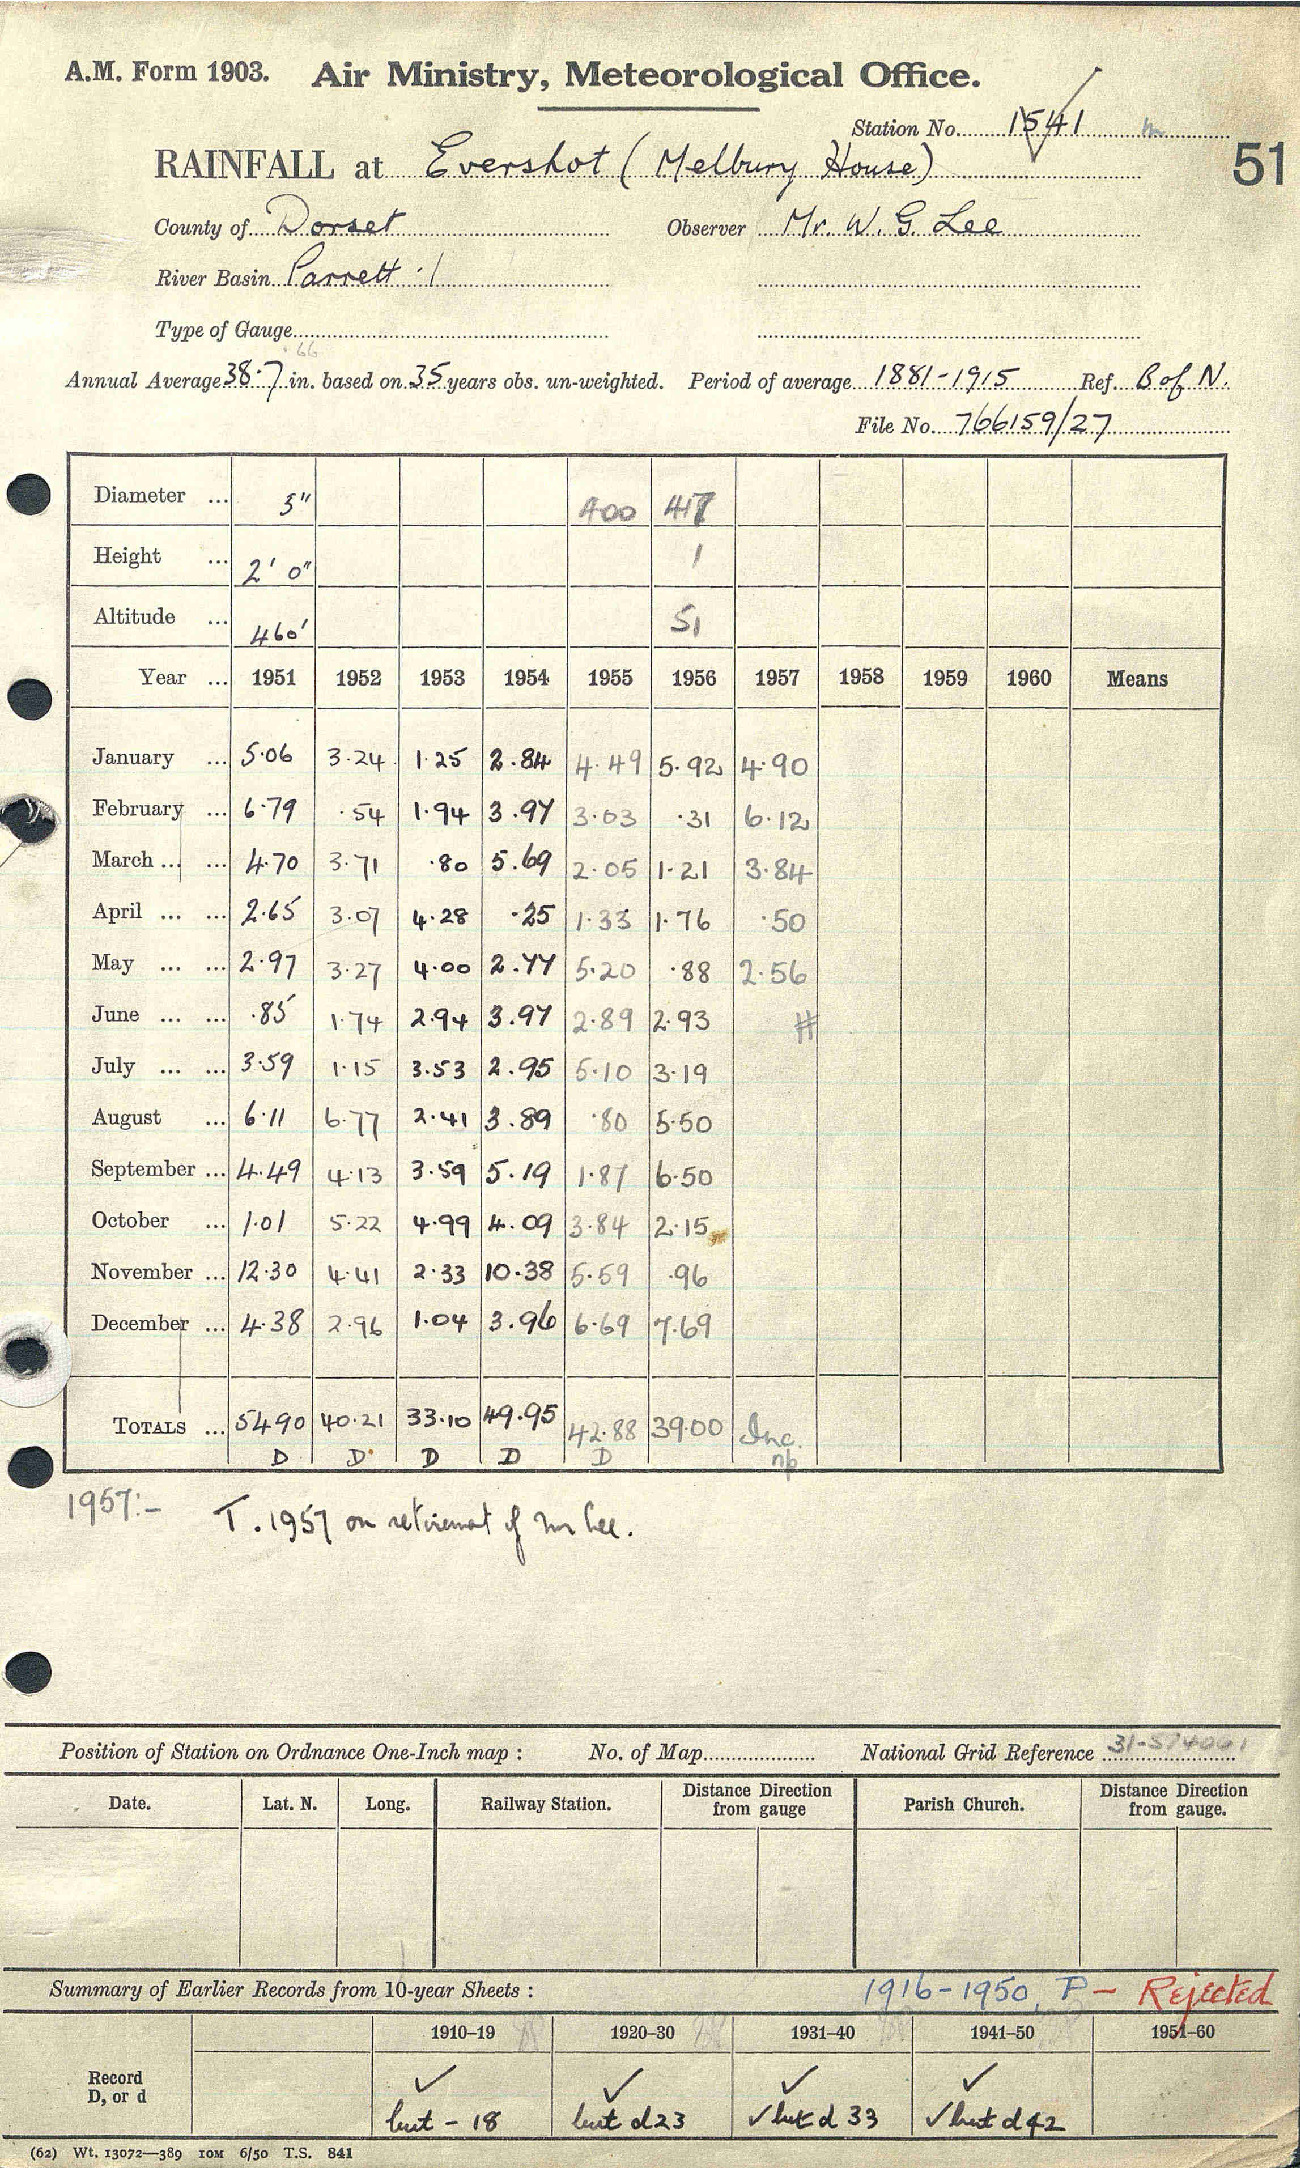 A.M. Form 1903. Air Ministry, Meteorological Office.
Station No. 1541
51
RAINFALL at Evershot (Melbury House)
County of Dorset Observer Mr. W. G. Lee
River Basin Parrett
Type of Gauge
.66
Annual Average 38.7 in. based on 35 years obs. un-weighted. Period of average 1881-1915 Ref. B of N.
File No. 766159/27
Diameter ... 5" 400 417
Height ... 2' 0" 1
Altitude ... 460' 51
Year ... 1951 1952 1953 1954 1955 1956 1957 1958 1959 1960 Means
January ... 5.06 3.24 1.25 2.84 4.49 5.92 4.90
February ... 6.79 .54 1.94 3.97 3.03 .31 6.12
March ... ... 4.70 3.71 .80 5.69 2.05 1.21 3.84
April ... ... 2.65 3.07 4.28 .25 1.33 1.76 .50
May ... ... 2.97 3.27 4.00 2.77 5.20 .88 2.56
June ... ... .85 1.74 2.94 3.97 2.89 2.93 #
July ... ... 3.59 1.15 3.53 2.95 5.10 3.19
August ... 6.11 6.77 2.41 3.89 .80 5.50
September ... 4.49 4.13 3.59 5.19 1.87 6.50
October ... 1.01 5.22 4.99 4.09 3.84 2.15
November ... 12.30 4.41 2.33 10.38 5.59 .96
December ... 4.38 2.96 1.04 3.96 6.69 7.69
TOTALS ... 54.90 40.21 33.10 49.95 42.88 39.00 Inc.
D D D D D np
1957:- T. 1957 on retirement of Mr Lee.
Position of Station on Ordnance One-Inch map : No. of Map National Grid Reference
Date. Lat. N. Long. Railway Station. Distance Direction from gauge Parish Church. Distance Direction from gauge.
Summary of Earlier Records from 10-year Sheets : 1916-1950, P - Rejected
1910–19 1920–30 1931–40 1941–50 1951–60
Record ✓ ✓ ✓ ✓
D, or d but - 18 but d 23 ✓ but d 33 ✓ but d 42
(62) Wt. 13072—389 10M 6/50 T.S. 841